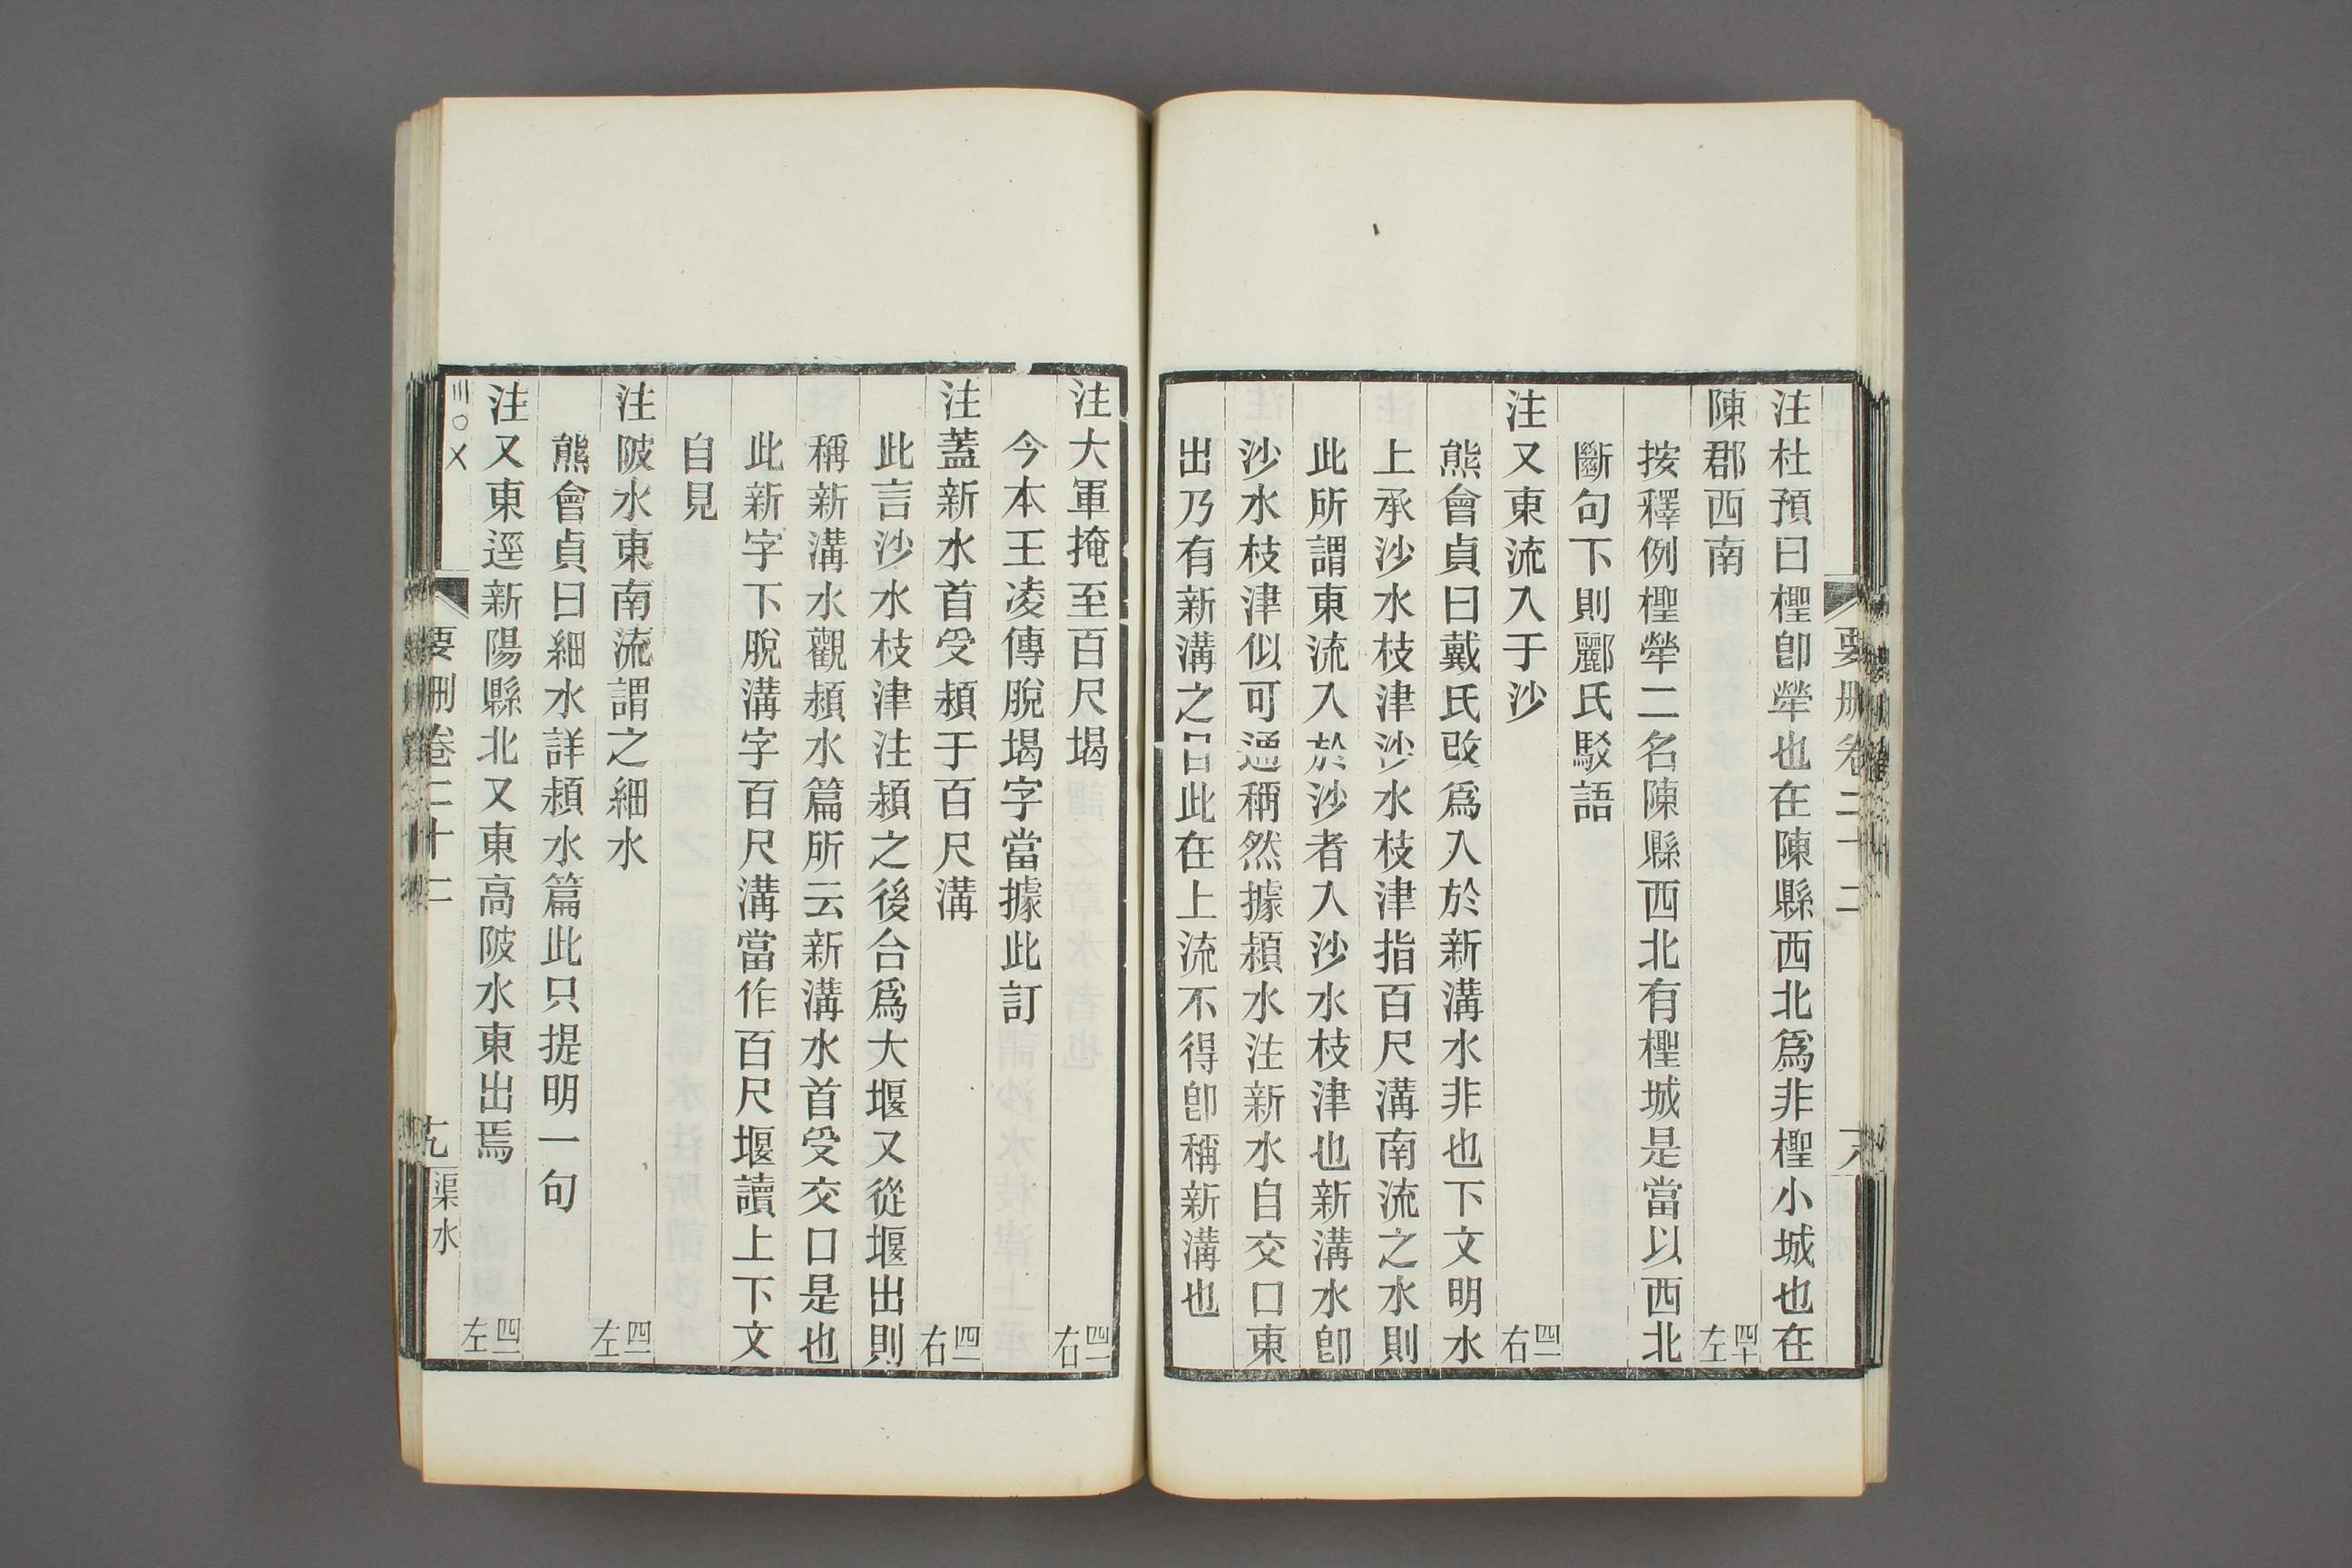 注杜預曰檉卽犖也在陳縣西北爲非檉小城也在
陳郡西南 四十左
按釋例檉犖二名陳縣西北有檉城是當以西北
斷句下則酈氏駁語
注又東流入于沙 四一右
熊會貞曰戴氏改爲入於新溝水非也下文明水
上承沙水枝津沙水枝津指百尺溝南流之水則
此所謂東流入於沙者入沙水枝津也新溝水卽
沙水枝津似可通稱然據潁水注新水自交口東
出乃有新溝之目此在上流不得卽稱新溝也
要刪卷二十二
注大軍掩至百尺堨 四一右
今本王凌傳脫堨字當據此訂
注蓋新水首受潁于百尺溝 四一右
此言沙水枝津注潁之後合爲大堰又從堰出則
稱新溝水觀潁水篇所云新溝水首受交口是也
此新字下脫溝字百尺溝當作百尺堰讀上下文
自見
注陂水東南流謂之細水 四一左
熊會貞曰細水詳潁水篇此只提明一句
注又東逕新陽縣北又東高陂水東出焉 四一左
〣〇〤
要刪卷二十二
渠水